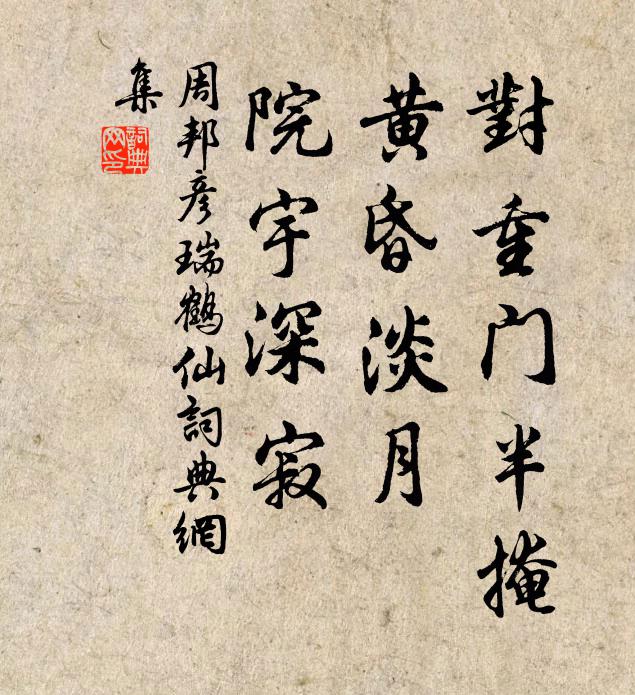 對重門半掩
黃昏淡月
院宇深寂
周邦彥瑞鶴仙詞典網
集
詞典
网印